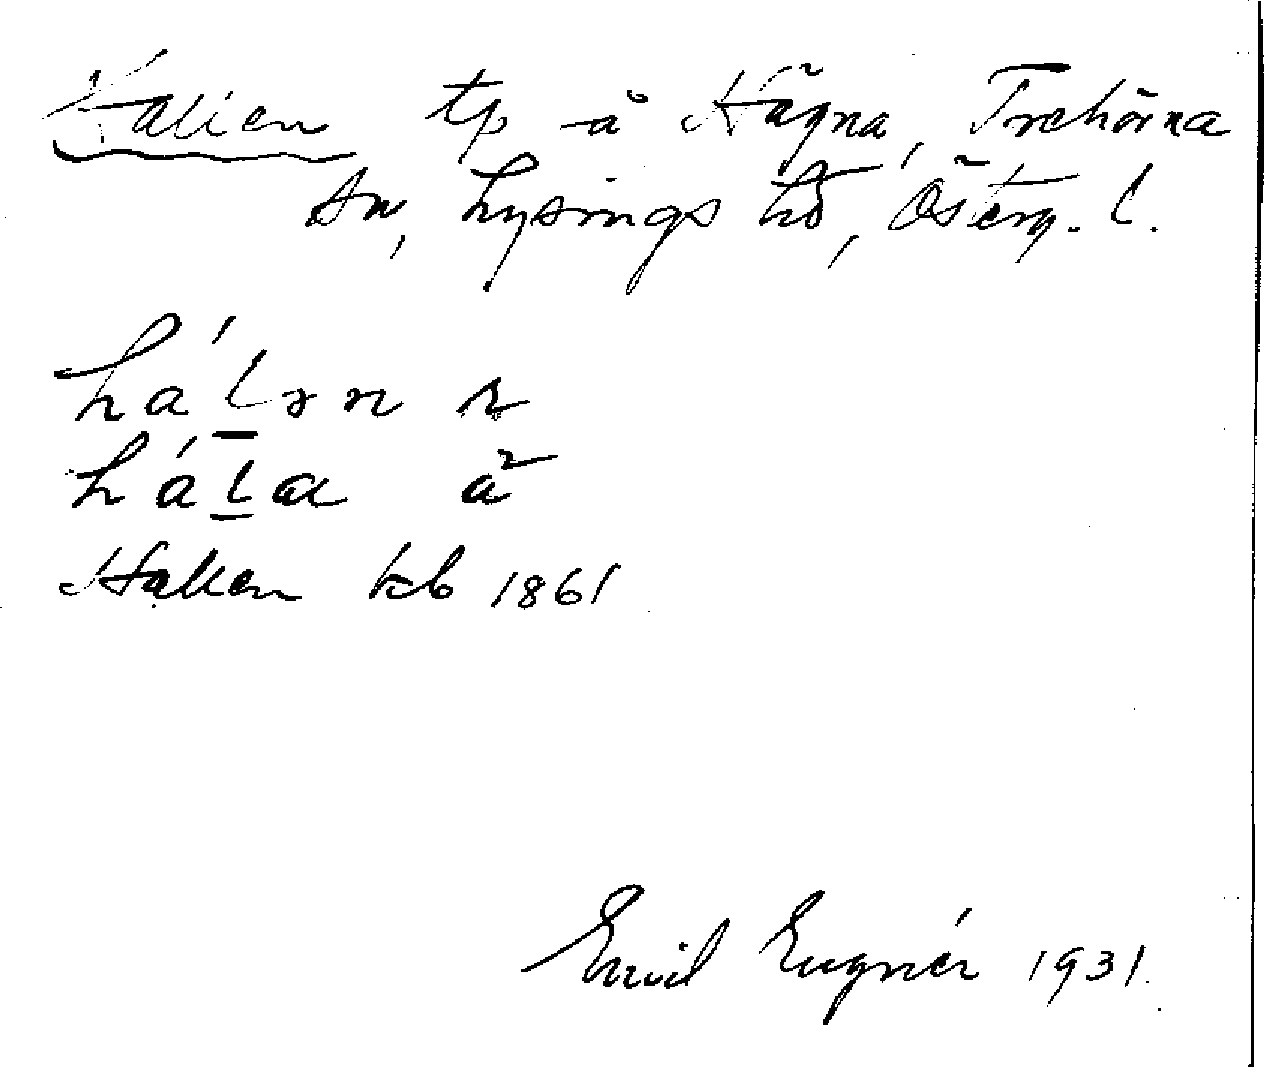 Hallen tp å Hägna, Trehörna
sn, Lysings hd, Österg. l.
Hallen kb 1861
Emil Eugnér 1931.